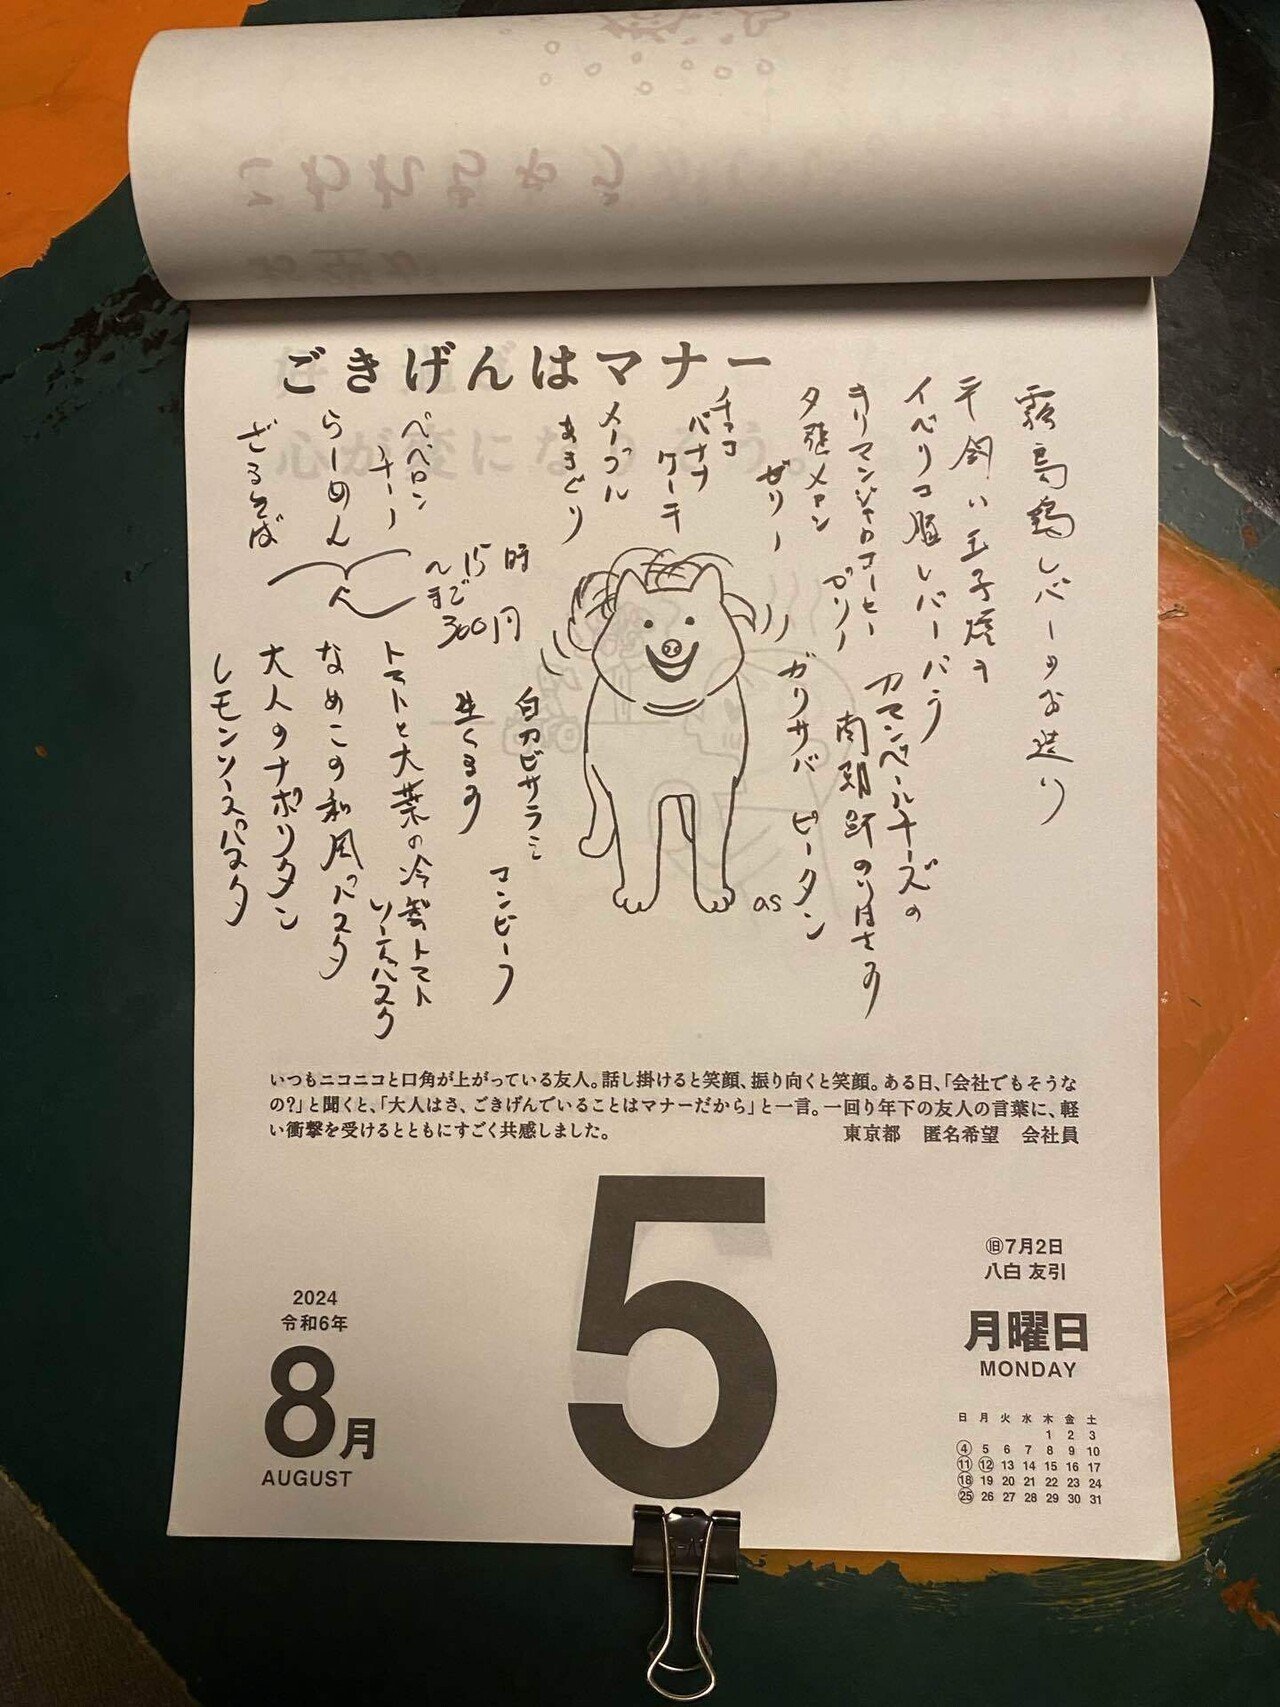 ごきげんはマナー
霧島鶏レバーのお造り
平飼い玉子焼き
イベリコ豚レバーバラ
カマンベールチーズの
キリマンジャロコーヒー
プリン
南朝
夕張メロン
ゼリー
ガリサバ
ピータン
チョコ
バナナ
ケーキ
メープル
ペペロン
チーノ
らーめん
ざるそば
〜15時
まで
300円
白カビサラミ
コンビーフ
トマトと大葉の冷製トマト
ソースパスタ
なめこの和風パスタ
大人のナポリタン
レモンソースパスタ
as
いつもニコニコと口角が上がっている友人。話し掛けると笑顔、振り向くと笑顔。ある日、「会社でもそうな
の?」と聞くと、「大人はさ、ごきげんでいることはマナーだから」と一言。一回り年下の友人の言葉に、軽
い衝撃を受けるとともにすごく共感しました。 東京都 匿名希望 会社員
2024
令和6年
8月
AUGUST
5
㊐7月2日
八白 友引
月曜日
MONDAY
日 月 火 水 木 金 土
1 2 3
4 5 6 7 8 9 10
11 12 13 14 15 16 17
18 19 20 21 22 23 24
25 26 27 28 29 30 31